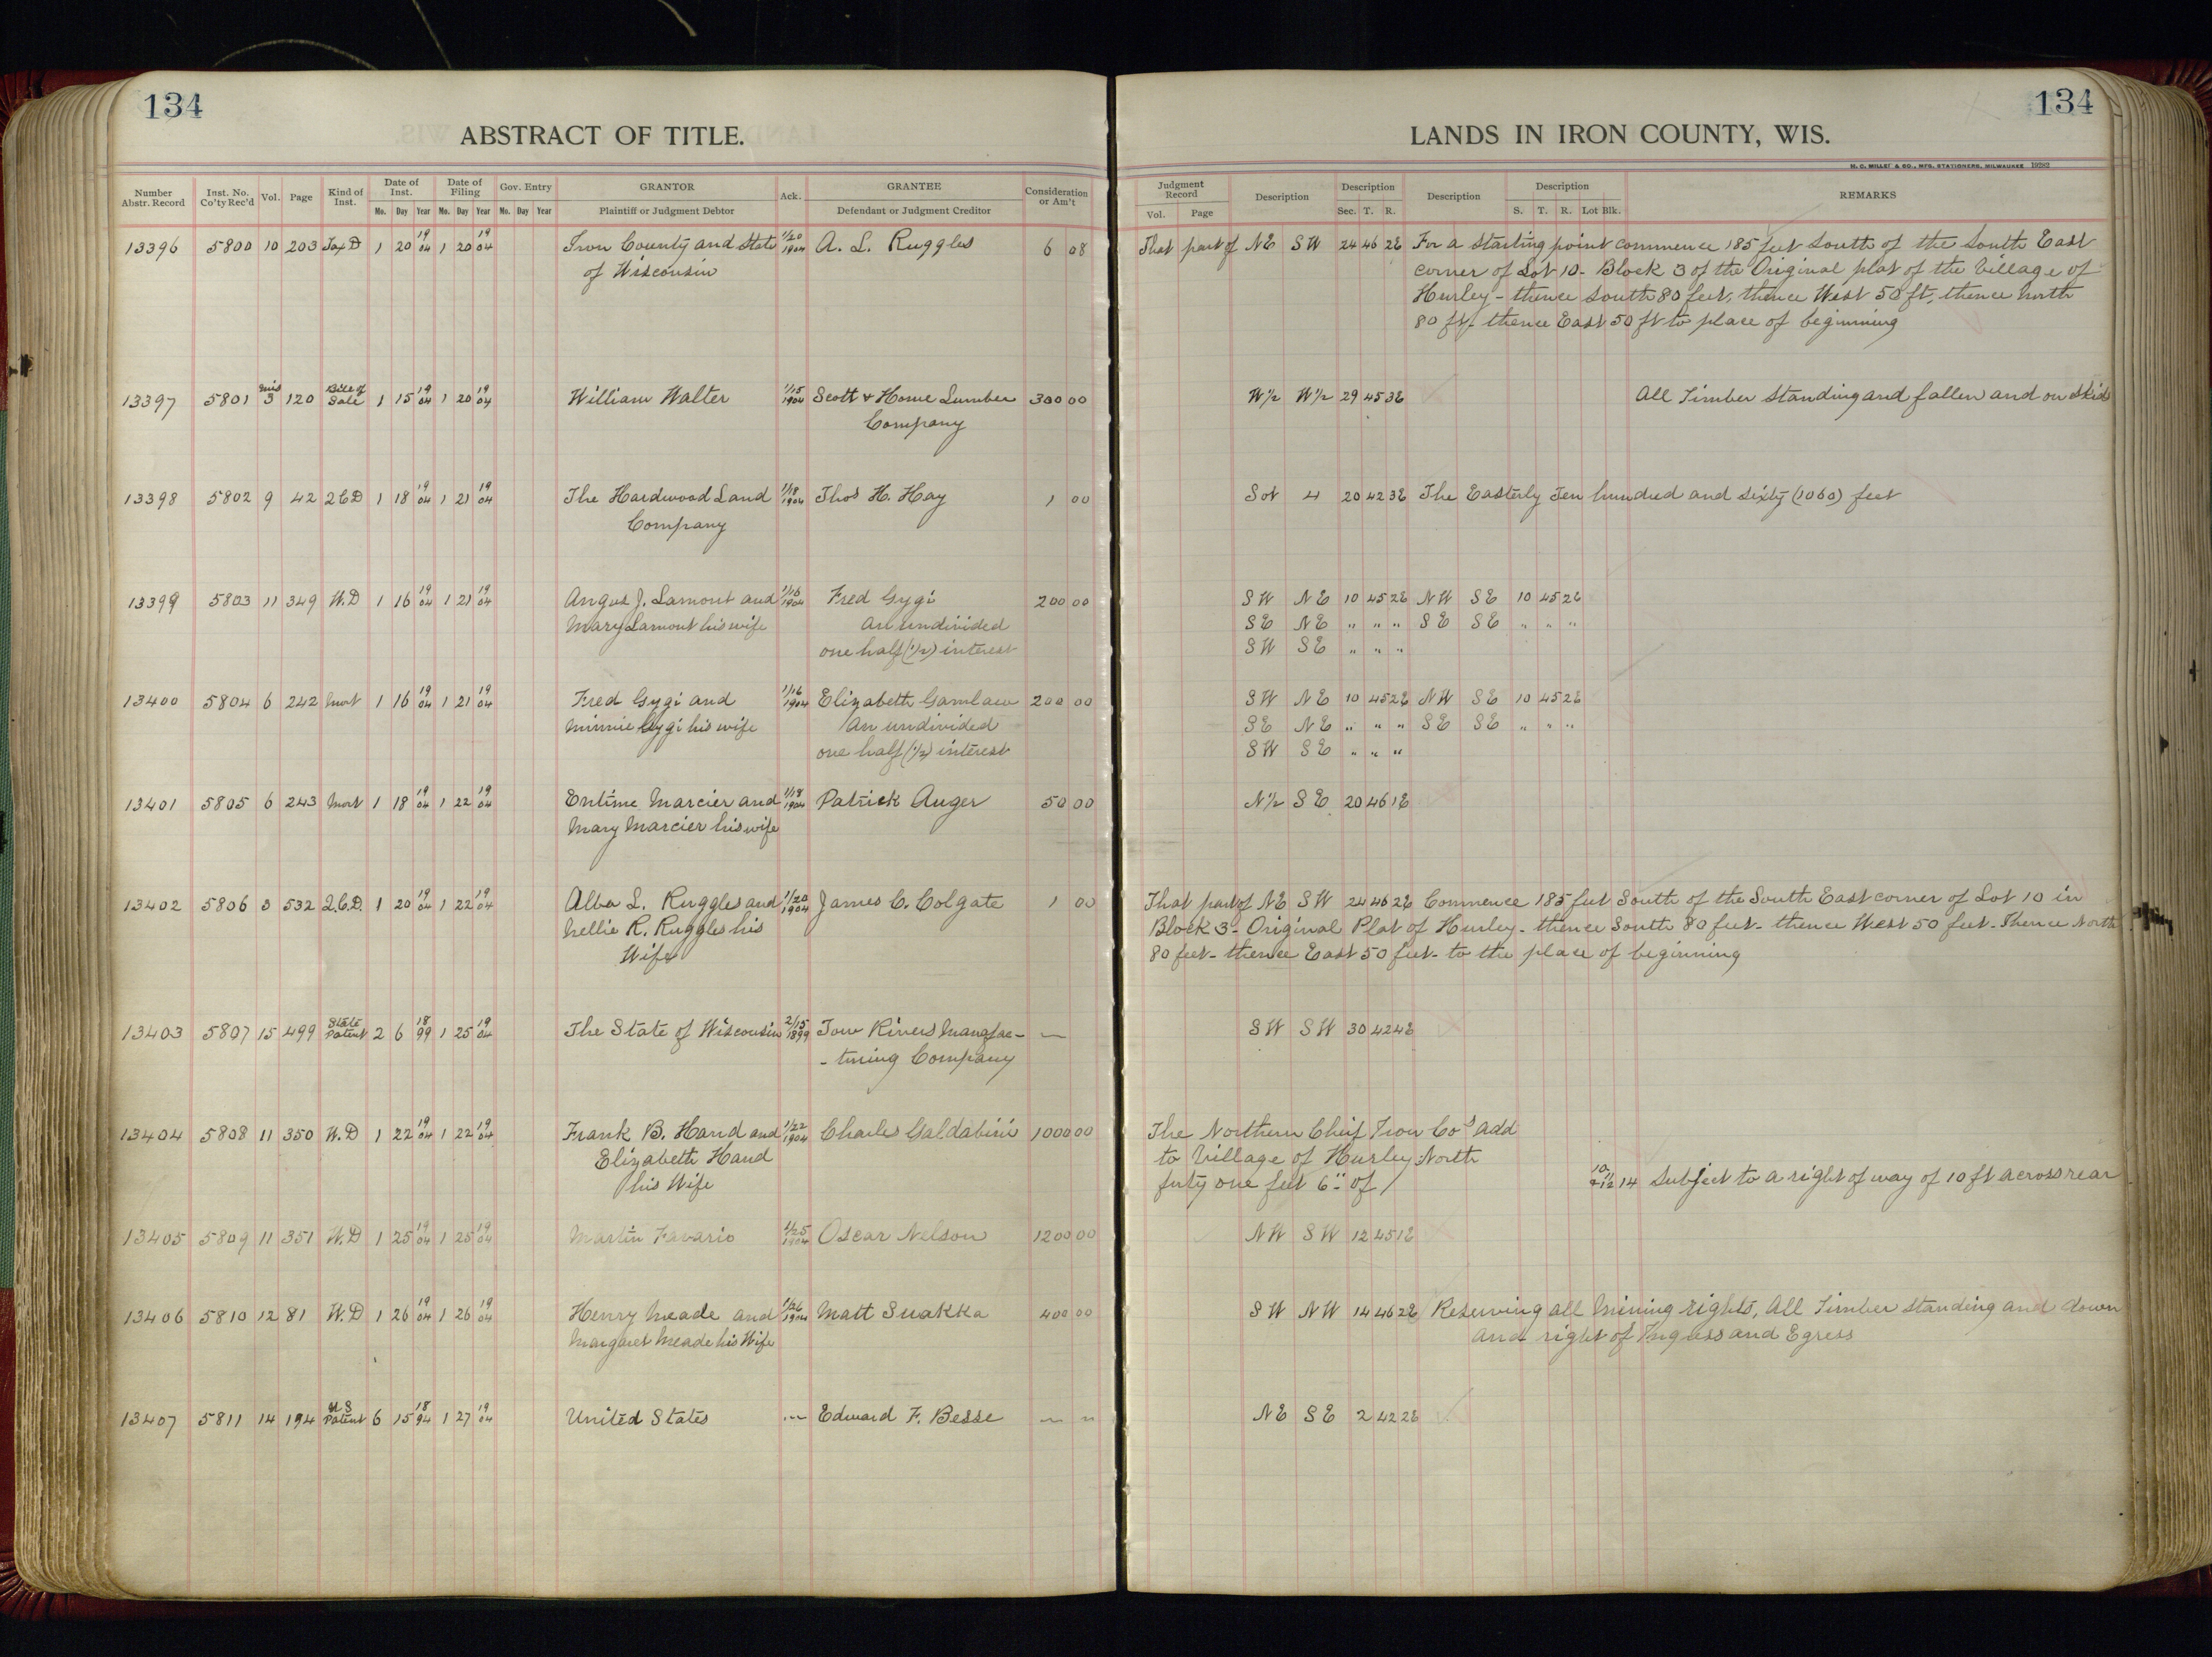 134
134
ABSTRACT OF TITLE.
LANDS IN IRON COUNTY, WIS.
H. C. MILLER & CO., MFG. STATIONERS, MILWAUKEE 19282
Number Abstr. Record Inst. No. Co'ty Rec'd Vol. Page Kind of Inst. Date of Inst. Date of Filing Gov. Entry GRANTOR Ack. GRANTEE Consideration or Am't Judgment Record Description Description Description Description REMARKS
Mo. Day Year Mo. Day Year Mo. Day Year Plaintiff or Judgment Debtor Defendant or Judgment Creditor Vol. Page Sec. T. R. S. T. R. Lot Blk.
13396 5800 10 203 Tax D 1 20 19 04 1 20 19 04 Iron County and State 1/20 1904 A. L. Ruggles 6 08 That part of NE SW 24 46 2E For a starting point commence 185 feet South of the South East
of Wisconsin corner of Lot 10 - Block 3 of the Original plat of the Village of
Hurley - thence South 80 feet, thence West 50 ft, thence North
80 ft - thence East 50 ft to place of beginning
13397 5801 Mis 3 120 Bill of Sale 1 15 19 04 1 20 19 04 William Walter 1/15 1904 Scott & Howe Lumber 300 00 W1/2 W1/2 29 45 3E All Timber standing and fallen and on skids
Company
13398 5802 9 42 2CD 1 18 19 04 1 21 19 04 The Hardwood Land 1/18 1904 Thos H. Hay 1 00 Lot 4 20 42 3E The Easterly Ten hundred and sixty (1060) feet
Company
13399 5803 11 349 W.D 1 16 19 04 1 21 19 04 Angus J. Lamont and 1/16 1904 Fred Gygi 200 00 SW NE 10 45 2E NW SE 10 45 2E
Mary Lamont his wife An undivided SE NE " " " SE SE " " "
one half (1/2) interest SW SE " " "
13400 5804 6 242 Mort 1 16 19 04 1 21 19 04 Fred Gygi and 1/16 1904 Elizabeth 200 00 SW NE 10 45 2E NW SE 10 45 2E
Minnie Gygi his wife An undivided SE NE " " " SE SE " " "
one half (1/2) interest SW SE " " "
13401 5805 6 243 Mort 1 18 19 04 1 22 19 04 Entime Marcier and 1/18 1904 Patrick Auger 50 00 N1/2 SE 20 46 1E
Mary Marcier his wife
13402 5806 8 532 Q.C.D. 1 20 19 04 1 22 19 04 Alba L. Ruggles and 1/20 1904 James C. Colgate 1 00 That part of NE SW 24 46 2E Commence 185 feet South of the South East corner of Lot 10 in
Nellie R. Ruggles his Block 3 - Original Plat of Hurley - thence South 80 feet - thence West 50 feet - Thence North
Wife 80 feet - thence East 50 feet - to the place of beginning
13403 5807 15 499 State Patent 2 6 18 99 1 25 19 04 The State of Wisconsin 2/15 1899 Tow Rivers Manufac- — SW SW 30 42 4E
- turing Company
13404 5808 11 350 W.D 1 22 19 04 1 22 19 04 Frank B. Hand and 1/22 1904 Charles Galdabini 1000 00 The Northern Chief Iron Co's Add
Elizabeth Hand to Village of Hurley: North
his Wife forty one feet 6" of 10 11 & 12 14 Subject to a right of way of 10 ft across rear
13405 5809 11 351 W.D 1 25 19 04 1 25 19 04 Martin Favario 1/25 1904 Oscar Nelson 1200 00 NW SW 12 45 1E
13406 5810 12 81 W.D 1 26 19 04 1 26 19 04 Henry Meade and 1/26 1904 Matt Suakka 400 00 SW NW 14 46 2E Reserving all Mining rights, All Timber standing and down
Margaret Meade his Wife and right of Ingress and Egress
13407 5811 14 194 US Patent 6 15 18 94 1 27 19 04 United States — Edward F. Besse — " NE SE 2 42 2E